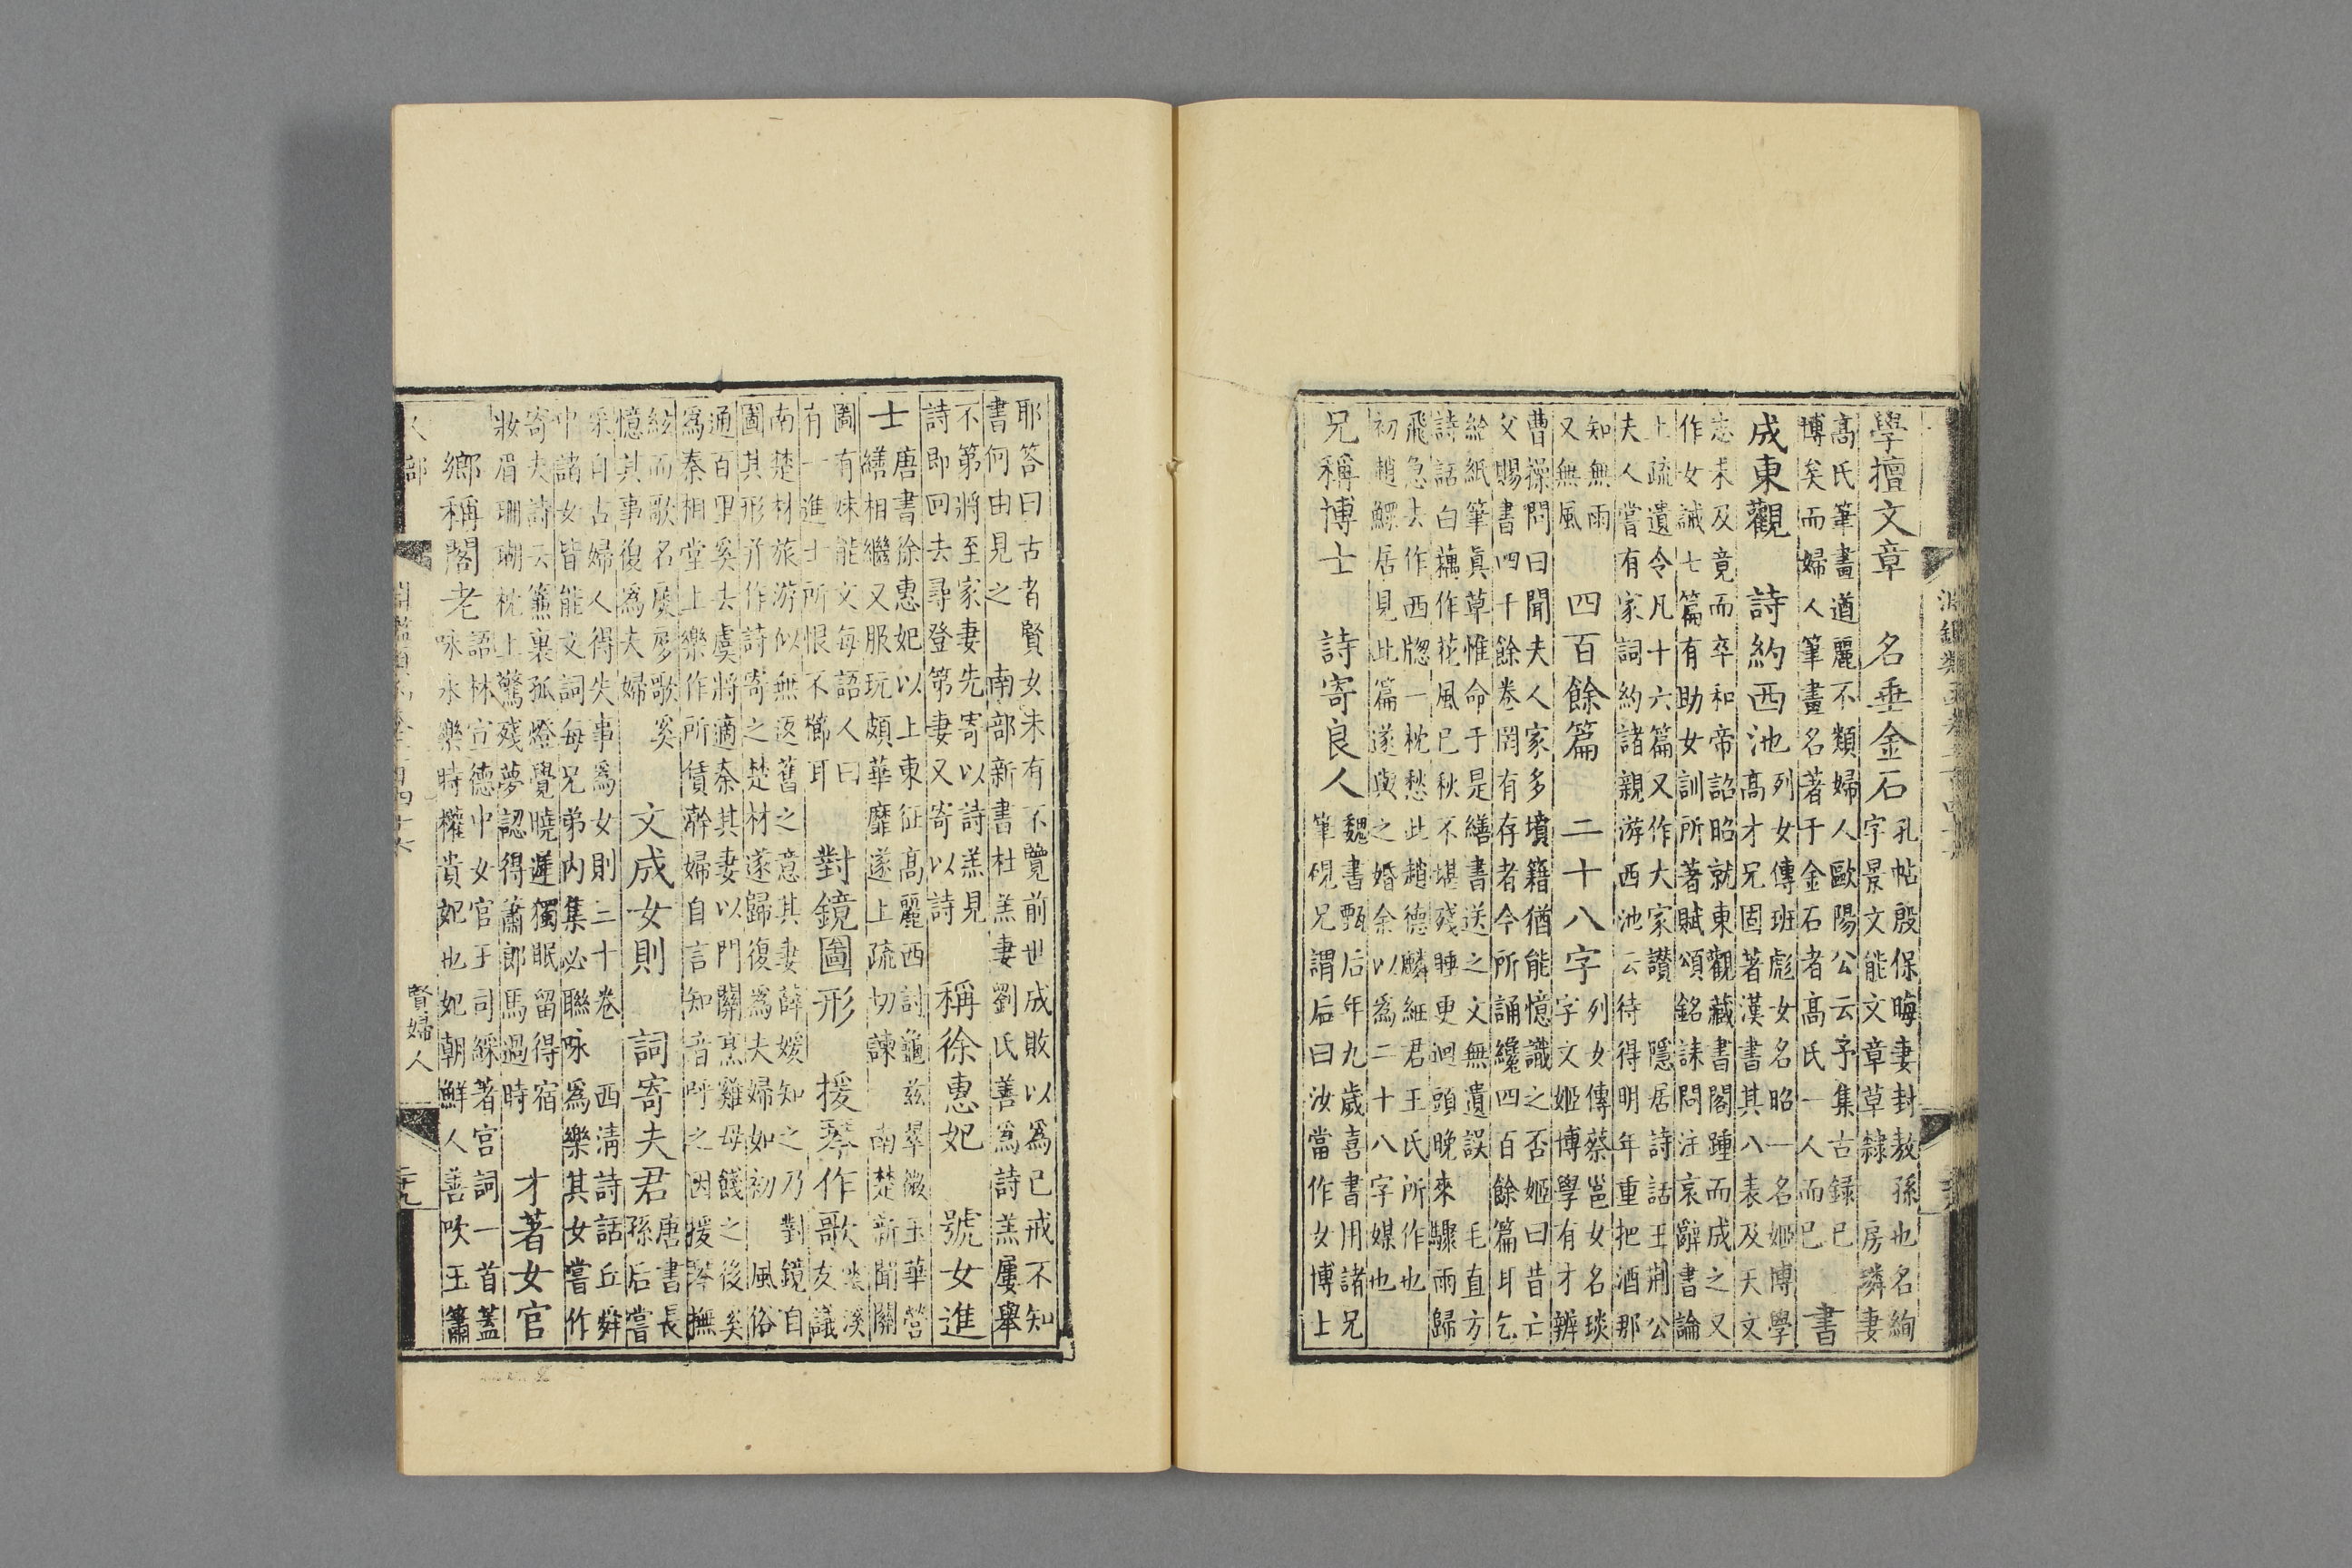 學擅文章　名垂金石
孔帖殷保晦妻封敖孫也名絢
字景文能文章草隸　房璘妻
高氏筆畫遒麗不類婦人歐陽公云予集古録已
博矣而婦人筆畫名著于金石者高氏一人而已
書
成東觀　詩約西池
列女傳班彪女名昭一名姬博學
高才兄固著漢書其八表及天文
志未及竟而卒和帝詔昭就東觀藏書閣踵而成之又
作女誡七篇有助女訓所著賦頌銘誄問注哀辭書論
上疏遺令凡十六篇又作大家讚　隱居詩話王荆公
夫人嘗有家詞約諸親游西池云待得明年重把酒那
知無雨
又無風
四百餘篇　二十八字
列女傳蔡邕女名琰
字文姬博學有才辨
曹操問曰聞夫人家多墳籍猶能憶識之否姬曰昔亡
父賜書四千餘卷罔有存者今所誦纔四百餘篇耳乞
給紙筆眞草惟命于是繕書送之文無遺誤　毛直方
詩話白藕作花風已秋不堪殘睡更迴頭晚來驟雨歸
飛急去作西牕一枕愁此趙德麟細君王氏所作也
初趙鰥居見此篇遂與之婚余以為二十八字媒也
兄稱博士　詩寄良人
魏書甄后年九歲喜書用諸兄
筆硯兄謂后曰汝當作女博士
耶答曰古者賢女未有不覽前世成敗以為已戒不知
書何由見之　南部新書杜羔妻劉氏善為詩羔屢舉
不第將至家妻先寄以詩羔見
詩即回去尋登第妻又寄以詩
稱徐惠妃　號女進
士
唐書徐惠妃以上東征高麗西討龜茲翠微玉華營
繕相繼又服玩頗華靡遂上疏切諫　南楚新聞關
圖有妹能文每語人曰
有一進士所恨不櫛耳
對鏡圖形　援琴作歌
雲溪
友議
南楚材旅游似無返舊之意其妻薛媛知之乃對鏡自
圖其形并作詩寄之楚材遂歸復為夫婦如初　風俗
通百里奚去虞將適秦其妻以門關烹雞母餞之後奚
為秦相堂上樂作所賃澣婦自言知音呼之因援琴撫
絃而歌名扊扅歌奚
憶其事復為夫婦
文成女則　詞寄夫君
唐書長
孫后嘗
采自古婦人得失事為女則三十卷　西清詩話丘舜
中諸女皆能文詞每兄弟内集必聯咏為樂其女嘗作
寄夫詩云簾裏孤燈覺曉遲獨眠留得宿
妝眉珊瑚枕上驚殘夢認得蕭郎馬過時
才著女官
鄉稱閣老
語林宣德中女官王司綵著宮詞一首蓋
咏永樂時權貴妃也妃朝鮮人善吹玉簫
人部
賢婦人